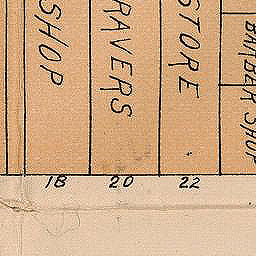 SHOP
RAVERS
STORE
BARBER SHOP
18 20 22